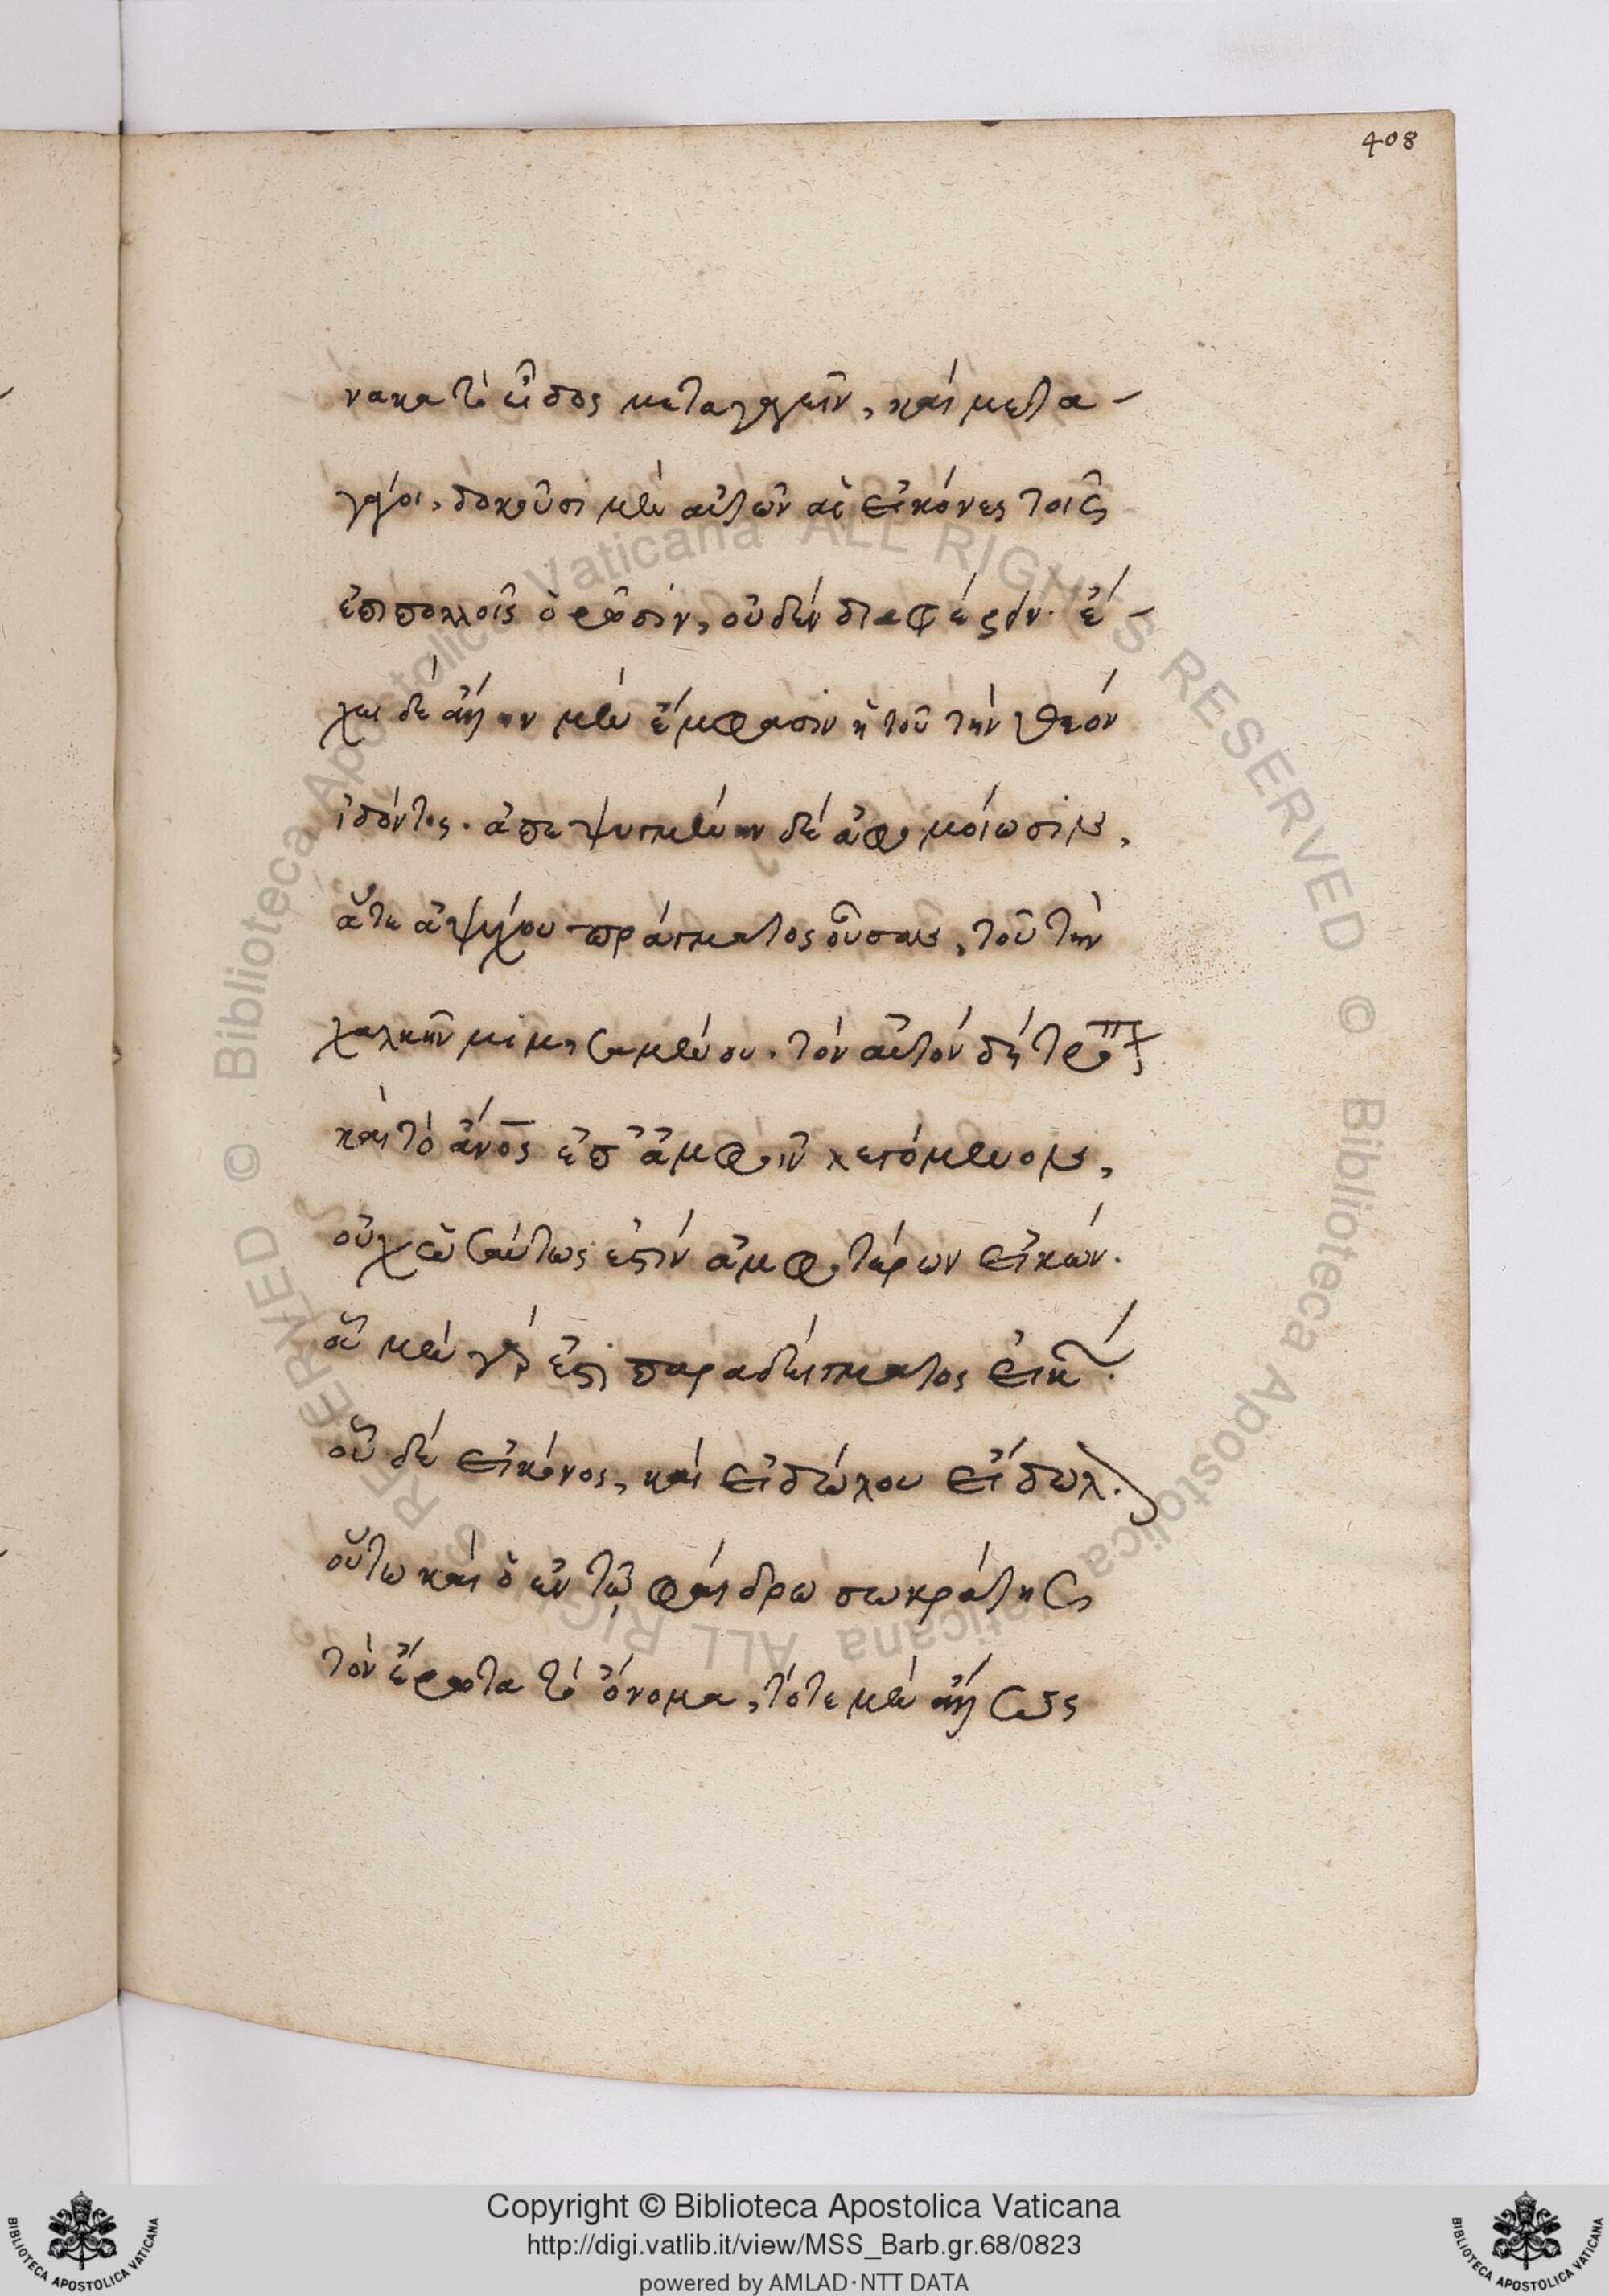 νακα τὸ εἶδος μεταγράφειν, καὶ μετα-
γράφοι, δοκοῦσι μὲν αὐτῶν αἱ εἰκόνες τοῖς
ἐπιπολλοῖς ὁρῶσιν, οὐδὲν διαφέρειν. ἔ-
χει δὲ μὲν ἔμφασιν ἡ τοῦ τὴν θεὸν
ἰδόντος. ἀπεψυγμένην δὲ ἀφομοίωσιν,
ἅτε ἀψύχου πράγματος οὖσαν, τοῦ τὴν
χαλκῆν μιμησαμένου. τὸν αὐτὸν δὴ τρόπον
καὶ τὸ ἄνος ἐπ' ἀμφοῖν λεγόμενον,
οὐχ ὡσαύτως ἐστὶν ἀμφοτέρων εἰκών.
οὗ μὲν γάρ ἐστι παραδείγματος εἰκών.
οὗ δὲ εἰκόνος, καὶ εἰδώλου εἴδωλον.
οὕτω καὶ ὁ ἐν τῷ φαίδρω σωκράτης
τὸν ἔρωτα τὸ ὄνομα, τότε μὲν
408
Copyright © Biblioteca Apostolica Vaticana
http://digi.vatlib.it/view/MSS_Barb.gr.68/0823
powered by AMLAD·NTT DATA
BIBLIOTECA APOSTOLICA VATICANA
BIBLIOTECA APOSTOLICA VATICANA